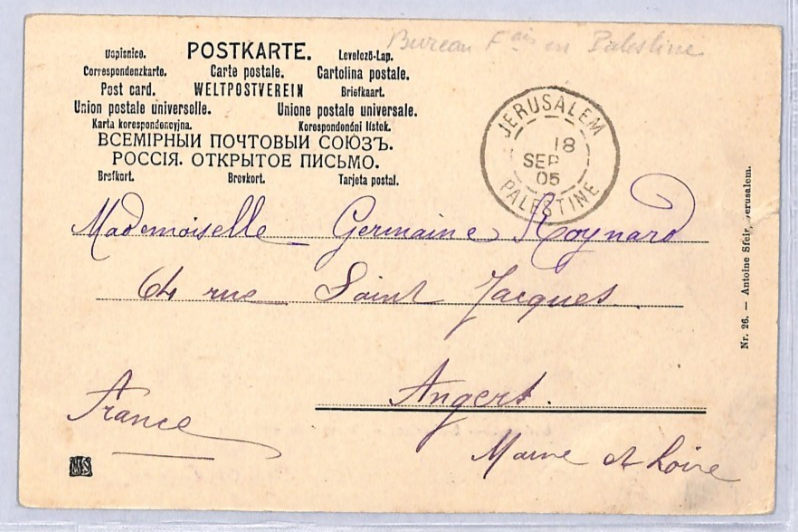 Bureau Fais en Palestine
Dopisnice. POSTKARTE. Levelező-Lap.
Correspondenzkarte. Carte postale. Cartolina postale.
Post card. WELTPOSTVEREIN Briefkaart.
Union postale universelle. Unione postale universale.
Karta korespondencyjna. Korespondenční lístek.
ВСЕМІРНЫЙ ПОЧТОВЫЙ СОЮЗЪ.
РОССІЯ. ОТКРЫТОЕ ПИСЬМО.
Brefkort. Brevkort. Tarjeta postal.
JERUSALEM
18
SEP
05
PALESTINE
Mademoiselle Germaine Roynard
64 rue Saint Jacques.
Angers.
France
Maine et Loire
Nr. 26. — Antoine Sfeir, Jerusalem.